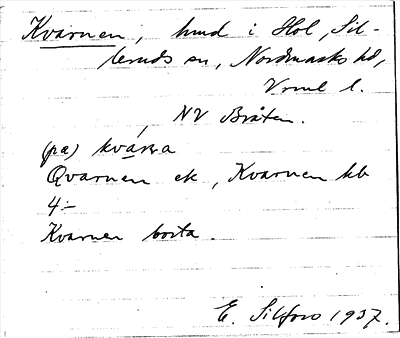 Kvarnen, hmd i Hol, Sil-
leruds sn, Nordmarks hd,
Vrml l.
NV Bråten.
(pa) kvána
Qvarnen ek, Kvarnen kb
4:-
Kvarnen borta.
E. Silfors 1937.